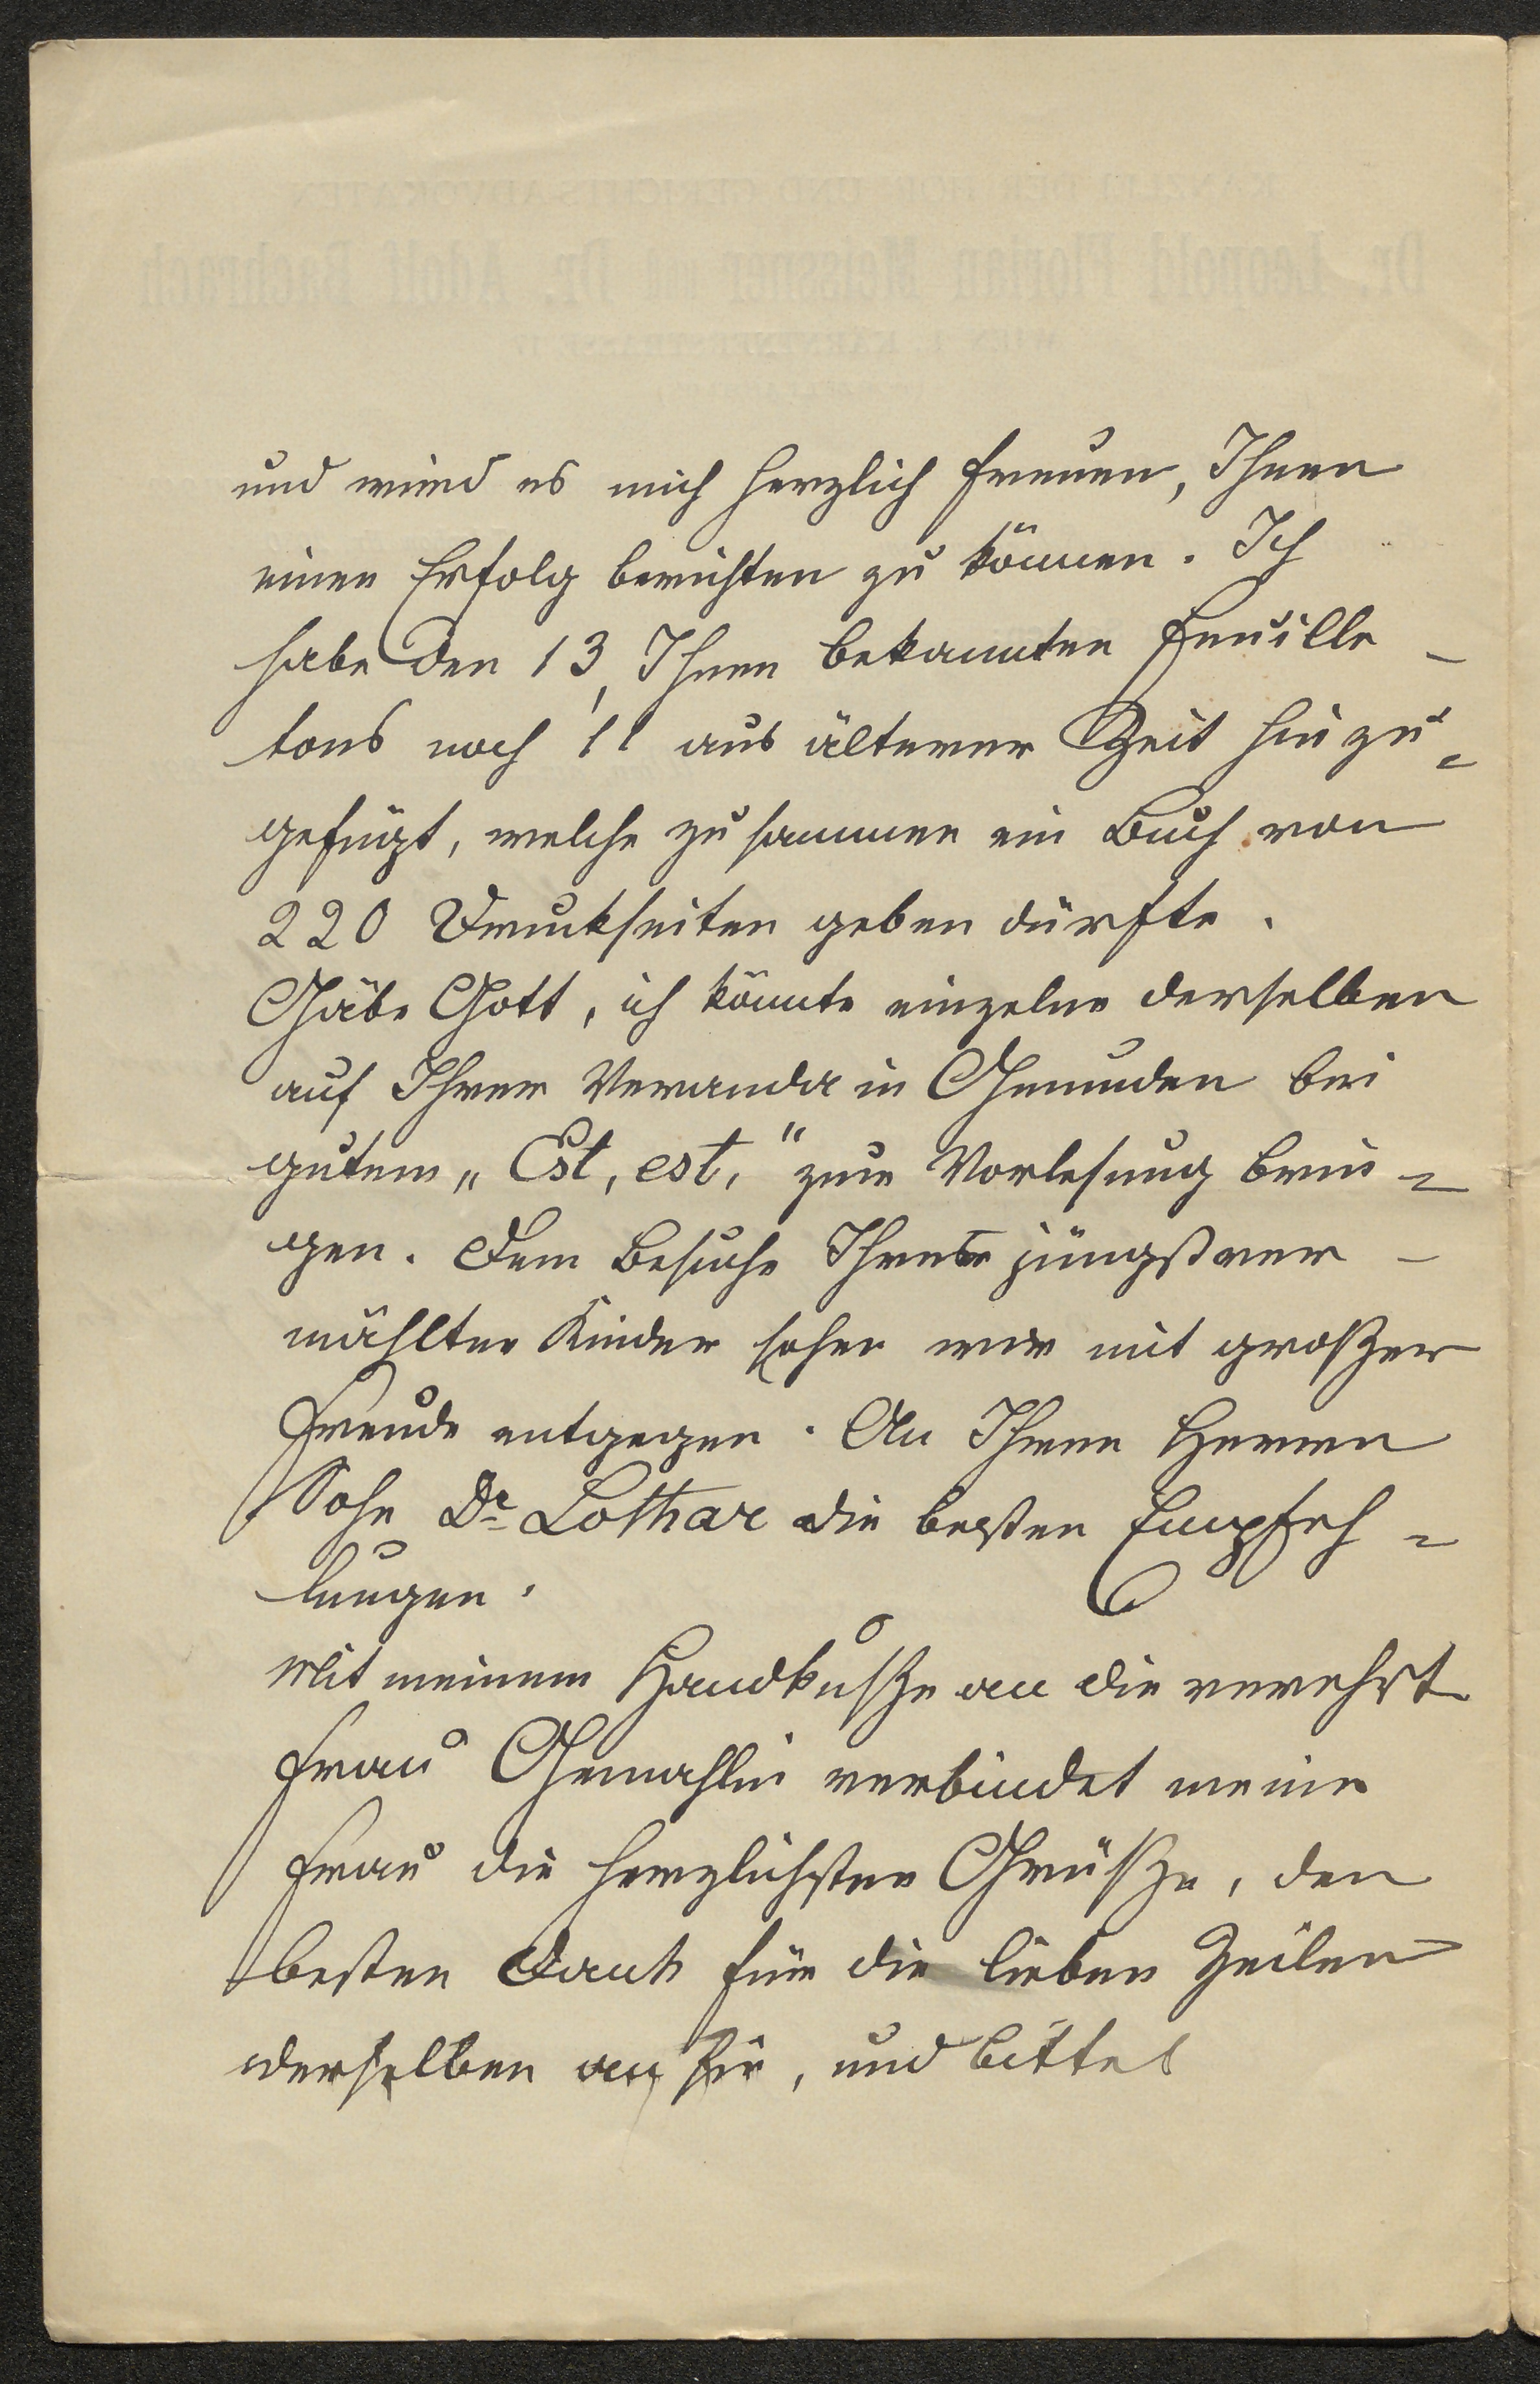 und wird es mich herzlich freuen, Ihnen
einen Erfolg berichten zu können. Ich
habe den 13, Ihnen bekannten Feuille-
tons noch 11 aus älterer Zeit hinzu=
gefügt, welche zusammen ein Buch von
220 Druckseiten geben dürfte.
Gäbe Gott, ich könnte einzelne derselben
auf Ihrer Veranda in Gmunden bei
gutem „Est, est," zur Vorlesung brin=
gen. Dem Besuche Ihrer jüngstver-
mählten Kinder sehen wir mit großer
Freude entgegen. An Ihren Herrn
Sohn Dr Lothar die besten Empfeh=
lungen.
Mit meinem Handkusse an die verehrte
Frau Gemahlin verbindet meine
Frau die herzlichsten Grüße, den
besten Dank für die lieben Zeilen
derselben an sie, und bittet
Dr. Leopold Florian Meissner und Dr. Adolf Bachrach